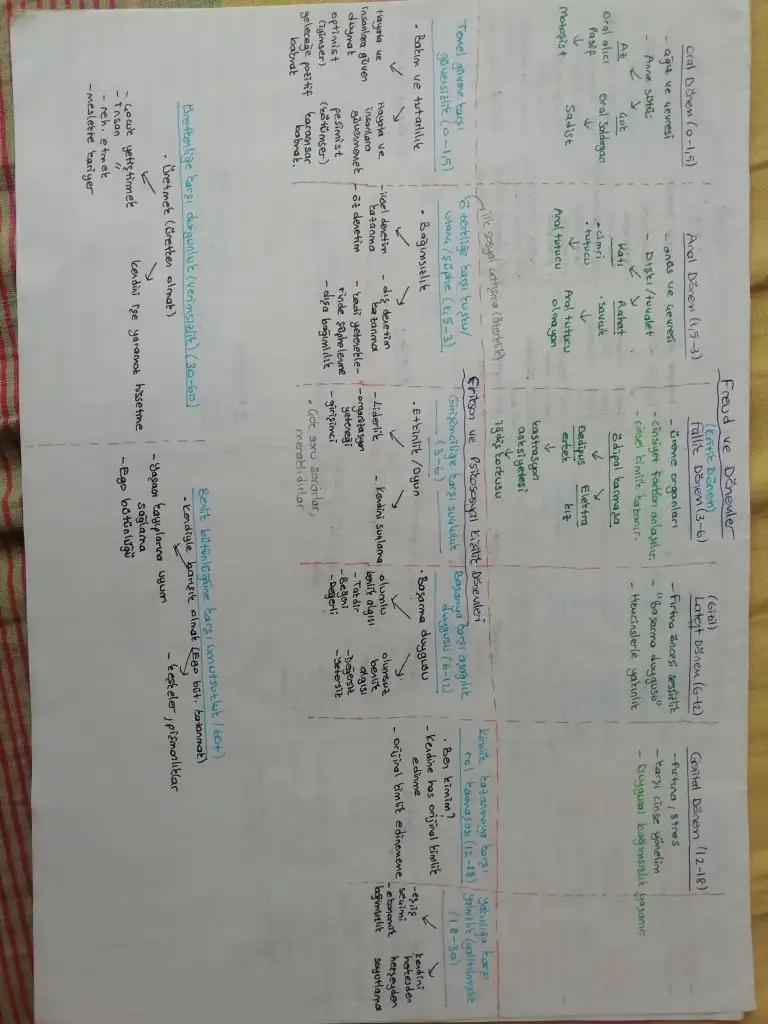 Freud ve Dönemler
Oral Dönem (0-1,5)
- ağız ve çevresi
- Anne sütü
Az Çok
Oral alıcı Oral saldırgan
Pasif
Mazoşist Sadist
Anal Dönem (1,5-3)
- anüs ve çevresi
- Dışkı/tuvalet
Katı Rahat
• cimri • savruk
• tutucu
Anal tutucu Anal tutucu
olmayan
ilk sosyal çatışma (otorite)
(Kritik Dönem)
Fallik Dönem (3-6)
- üreme organları
- cinsiyet farkları anlaşılır.
- cinsel kimlik kazanır.
ödipal karmaşa
Oedipus Elektra
erkek kız
kastrasyon
anksiyetesi
iğdiş korkusu
(Gizil)
Latent Dönem (6-12)
- fırtına öncesi sessizlik
- "Başarma duygusu"
- Hemcinslerle yakınlık
Genital Dönem (12-18)
- fırtına, stres
- karşı cinse yönelim
- Duygusal bağımsızlık yaşanır.
Erikson ve Psikososyal Kişilik Dönemleri
Temel güvene karşı
güvensizlik (0-1,5)
• Bakım ve tutarlılık
Hayata ve
insanlara güven
duymak
optimist
(iyimser)
geleceğe pozitif
bakmak
Hayata ve
insanlara
güvenmemek
pesimist
(kötümser)
karamsar
bakmak.
Özerkliğe karşı kuşku/
utanç/şüphe (1,5-3)
• Bağımsızlık
- içsel denetim
kazanma
- öz denetim
- dış denetim
kazanma
- kendi yetenekle-
rinde şüphelenme
- dışa bağımlılık
Girişimciliğe karşı suçluluk
(3-6)
• Etkinlik/Oyun
- Liderlik
- organizasyon
yeteneği
- girişimci
- kendini suçlama
• Çok soru sorarlar,
meraklıdırlar.
Başarıya karşı aşağılık
duygusu (6-12)
• Başarma duygusu
olumlu
benlik algısı
- Takdir
- Beğeni
- Değerli
olumsuz
benlik
algısı
- Değersiz
- Yetersiz
Kimlik kazanmaya karşı
rol karmaşası (12-18)
• Ben kimim?
- Kendine has orijinal kimlik
edinme
- orijinal kimlik edinememe
Yakınlığa karşı
yalnızlık (yalıtılmışlık
(18-30)
- eş, iş
seçimi
- ekonomik
bağımsızlık
kendini
herkesden
herşeyden
soyutlama
Üretkenliğe karşı durgunluk (verimsizlik) (30-60)
• Üretmek (üretken olmak)
- çocuk yetiştirmek
- insan "
- reh. etmek
- meslekte kariyer
kendini işe yaramaz hissetme
Benlik bütünlüğüne karşı umutsuzluk (60+)
• Kendiyle barışık olmak (Ego büt. kazanmak)
- Yaşam kayıplarına uyum
sağlama
- Ego bütünlüğü
- keşkeler, pişmanlıklar